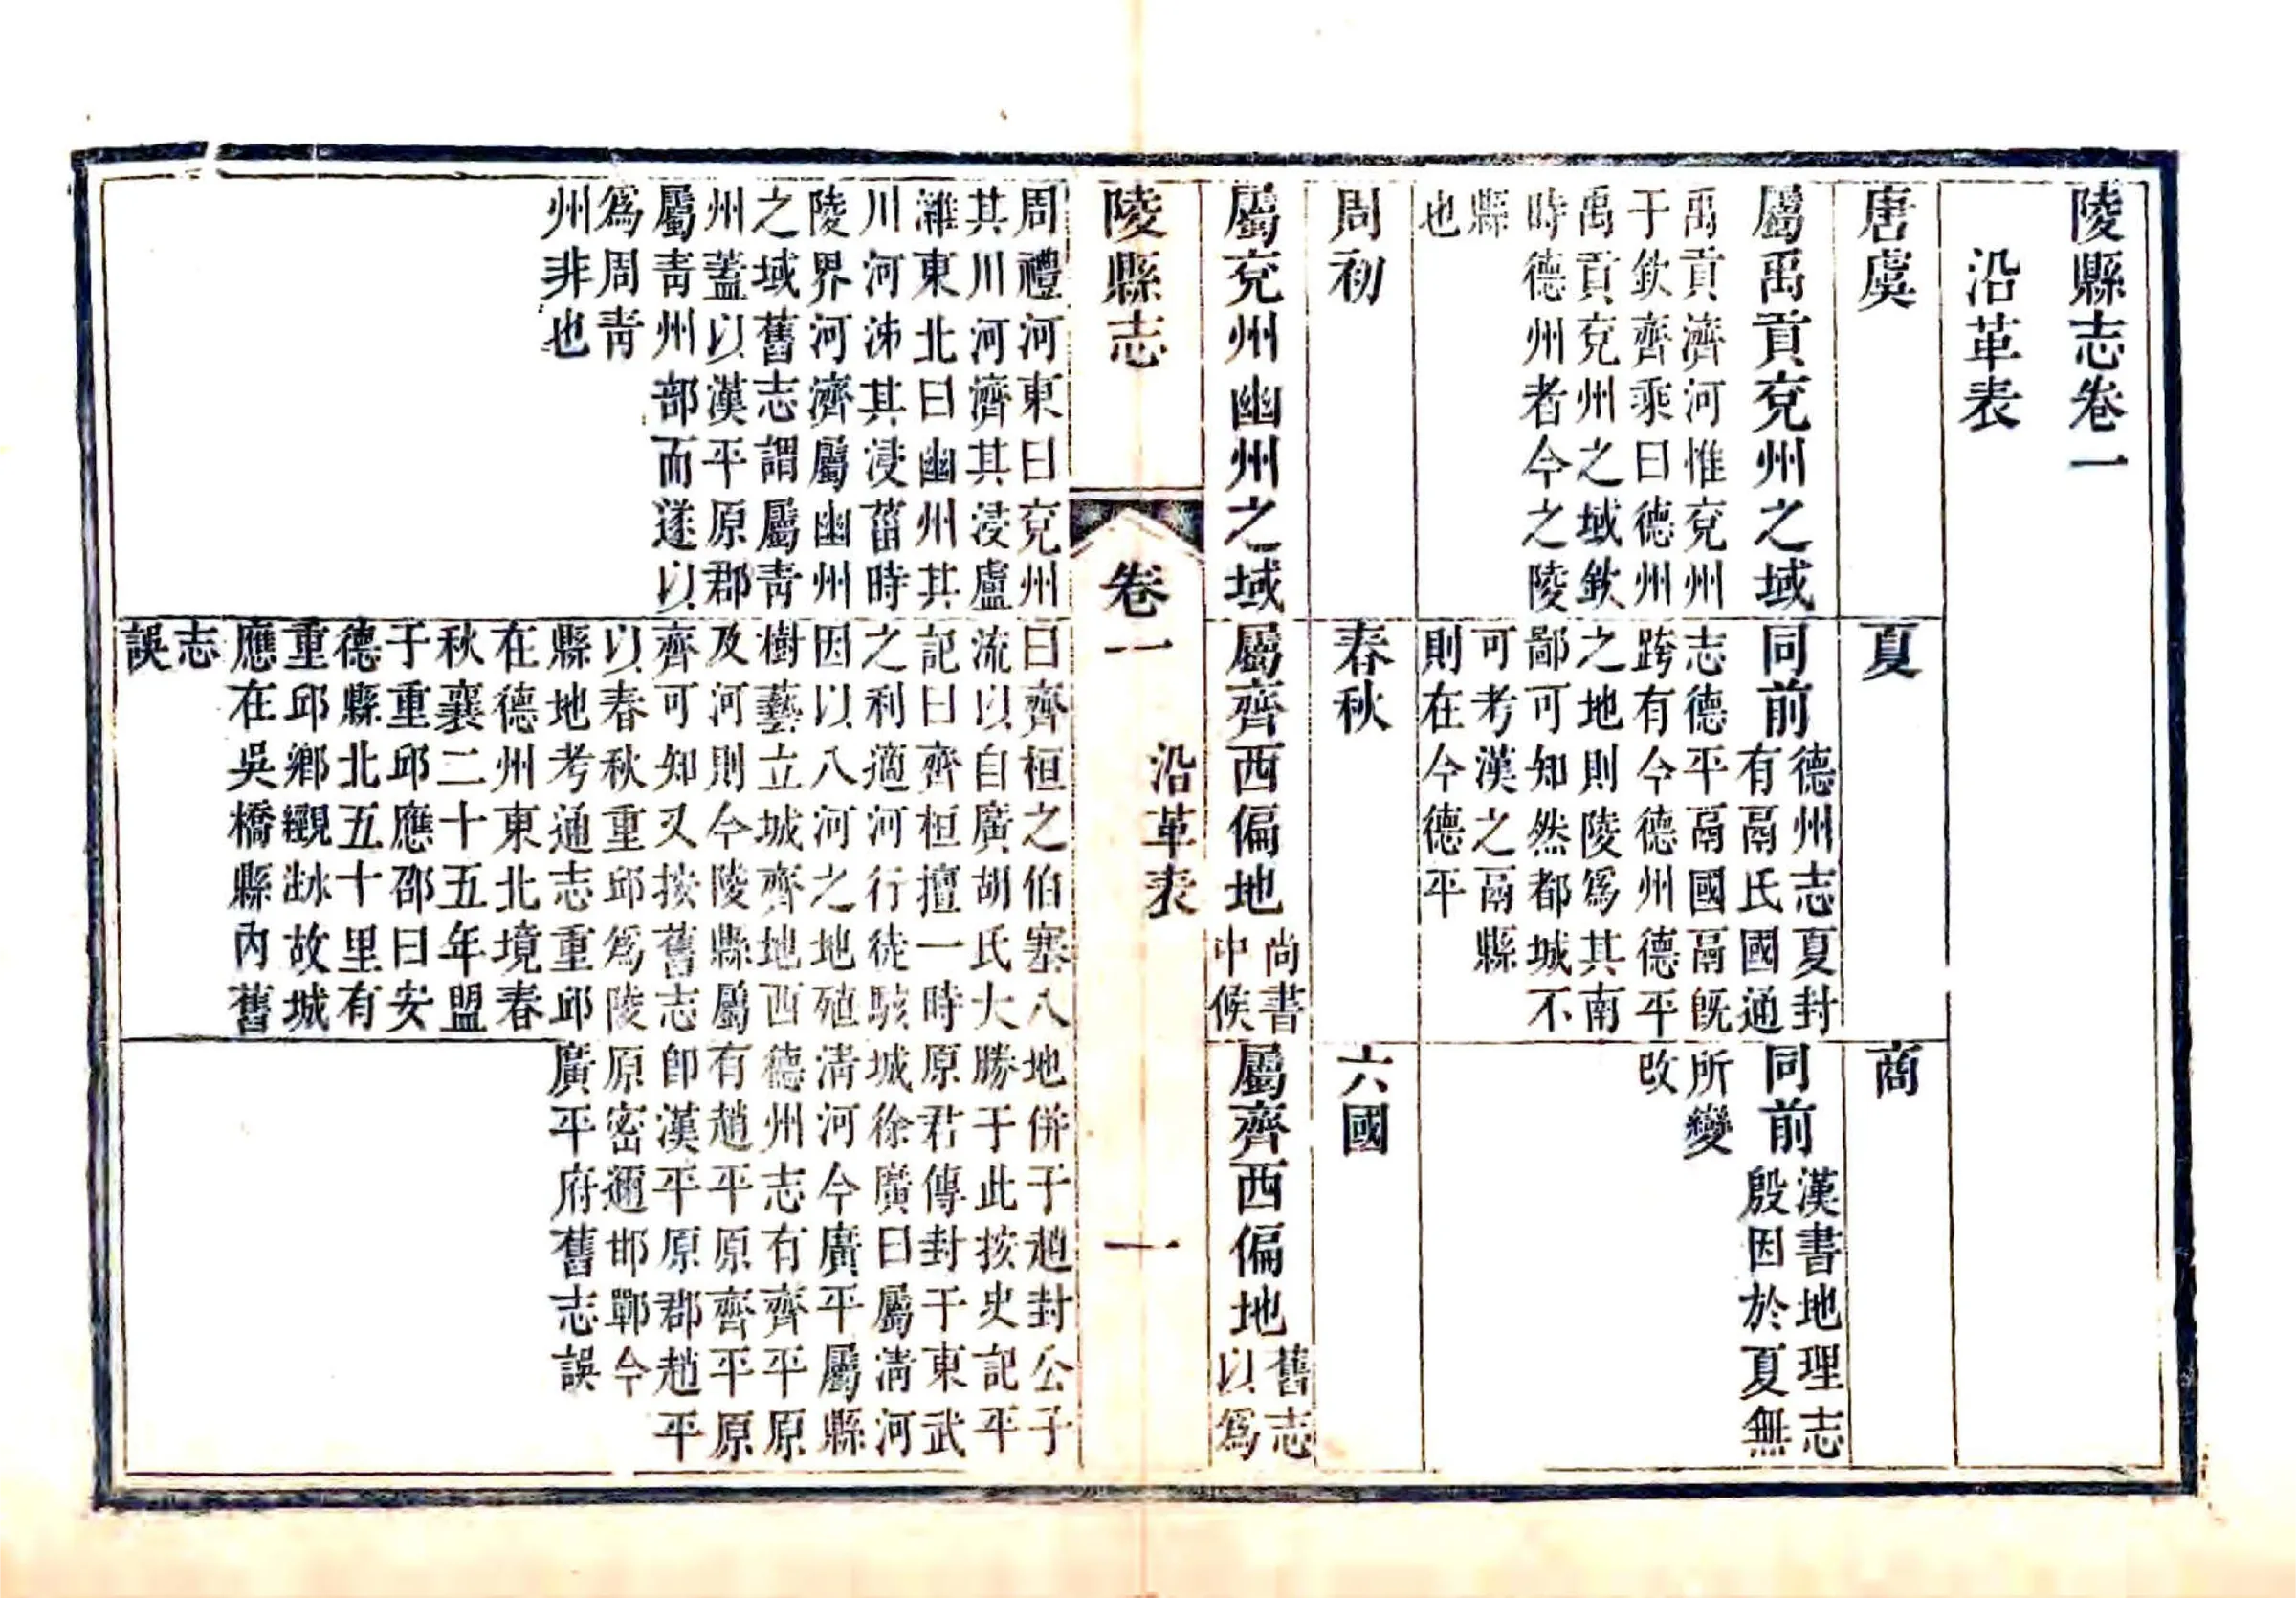 陵縣志卷一
沿革表
唐虞
屬禹貢兗州之域
禹貢濟河惟兗州
于欽齊乘曰德州
禹貢兗州之域欽
時德州者今之陵
縣
也
夏
同前
德州志夏封
有鬲氏國通
志德平鬲國鬲既
跨有今德州德平
之地則陵爲其南
鄙可知然都城不
可考漢之鬲縣
則在今德平
商
同前
漢書地理志
殷因於夏無
所變
改
周初
屬兗州幽州之域
周禮河東曰兗州
其川河濟其浸盧
濰東北曰幽州其
川河泲其浸菑時
陵界河濟屬幽州
之域舊志謂屬靑
州蓋以漢平原郡
屬靑州部而遂以
爲周靑
州非也
春秋
屬齊西偏地
尚書
中候
曰齊桓之伯塞八
流以自廣胡氏大
記曰齊桓擅一時
之利適河行徒駭
因以八河之地殖
樹藝立城齊地西
及河則今陵縣屬
齊可知又按舊志
以春秋重邱爲陵
縣地考通志重邱
在德州東北境春
秋襄二十五年盟
于重邱應邵曰安
德縣北五十里有
重邱鄉觀故城
應在吳橋縣內舊
志
誤
六國
屬齊西偏地
舊志
以爲
地併于趙封公子
勝于此按史記平
原君傳封于東武
城徐廣曰屬淸河
淸河今廣平屬縣
德州志有齊平原
有趙平原齊平原
即漢平原郡趙平
原密邇邯鄲今
廣平府舊志誤
陵縣志
卷一
沿革表
一